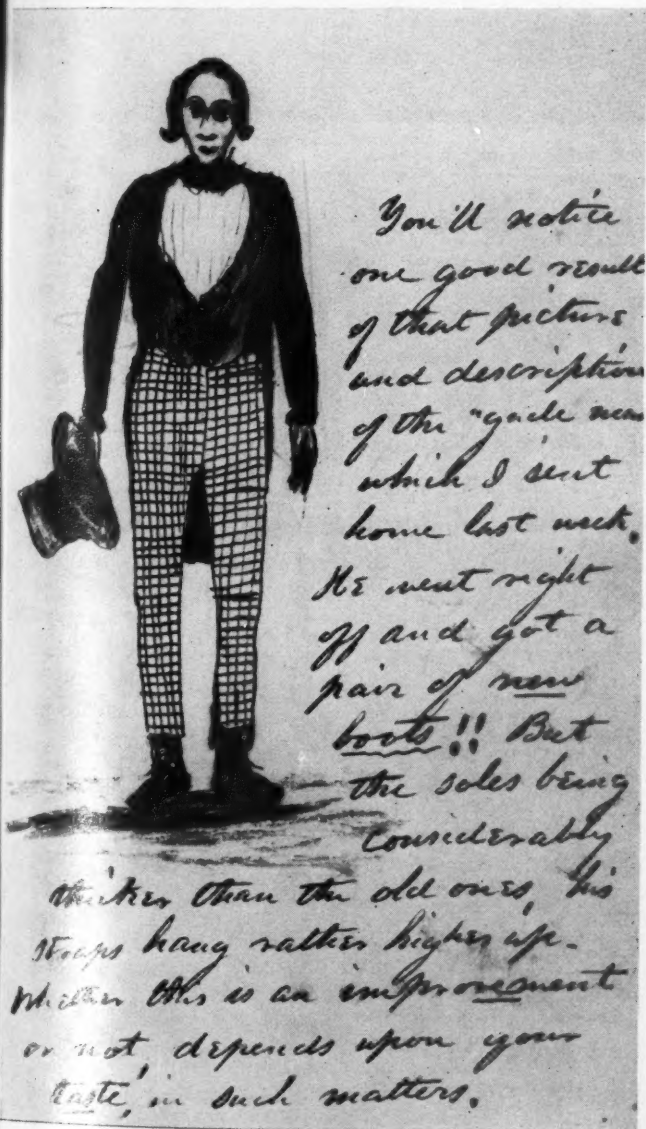 You'll notice
one good result
of that picture
and description
of the "gude man
which I sent
home last week.
He went right
off and got a
pair of new
boots!! But
the soles being
considerably
thicker than the old ones, his
straps hang rather higher up.
Whether this is an improvement
or not, depends upon your
taste, in such matters.